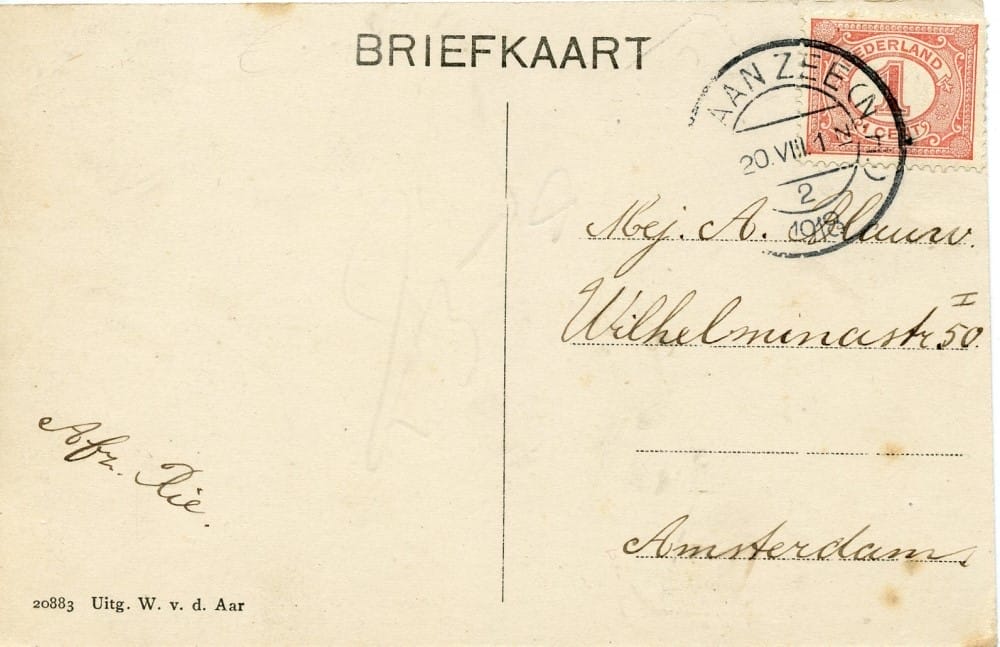 BRIEFKAART
NEDERLAND
1
1 CENT
AAN ZEE (N.H.)
20.VIII.1 N
2
1918
Mej. A. Blauw.
Wilhelminastr 50 I
Amsterdam.
Afz. Rie.
20883 Uitg. W. v. d. Aar